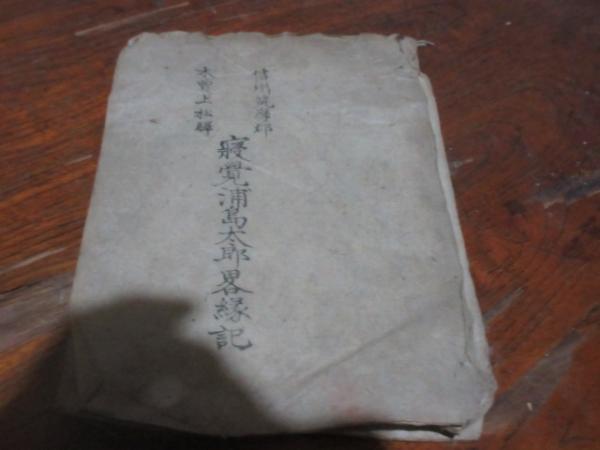 信州筑摩郡
木曽上松驛
寝覺浦島太郎畧縁記